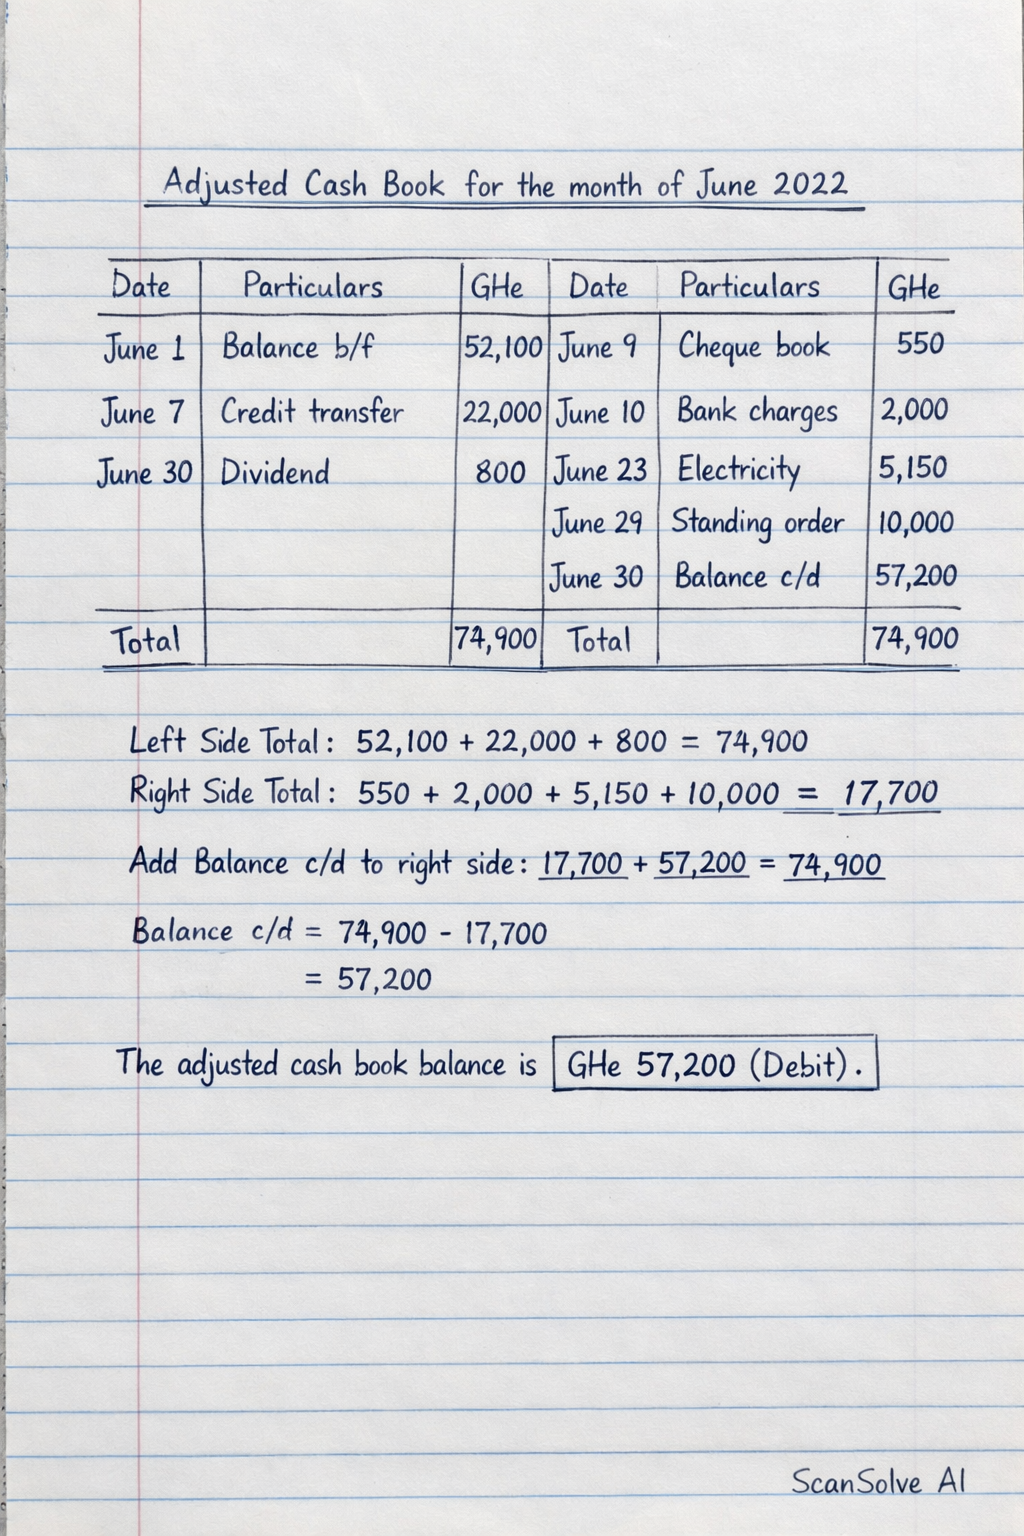 Adjusted Cash Book for the month of June 2022
Date Particulars GHe Date Particulars GHe
June 1 Balance b/f 52,100 June 9 Cheque book 550
June 7 Credit transfer 22,000 June 10 Bank charges 2,000
June 30 Dividend 800 June 23 Electricity 5,150
June 29 Standing order 10,000
June 30 Balance c/d 57,200
Total 74,900 Total 74,900
Left Side Total: 52,100 + 22,000 + 800 = 74,900
Right Side Total: 550 + 2,000 + 5,150 + 10,000 = 17,700
Add Balance c/d to right side: 17,700 + 57,200 = 74,900
Balance c/d = 74,900 - 17,700
= 57,200
The adjusted cash book balance is GHe 57,200 (Debit).
ScanSolve AI